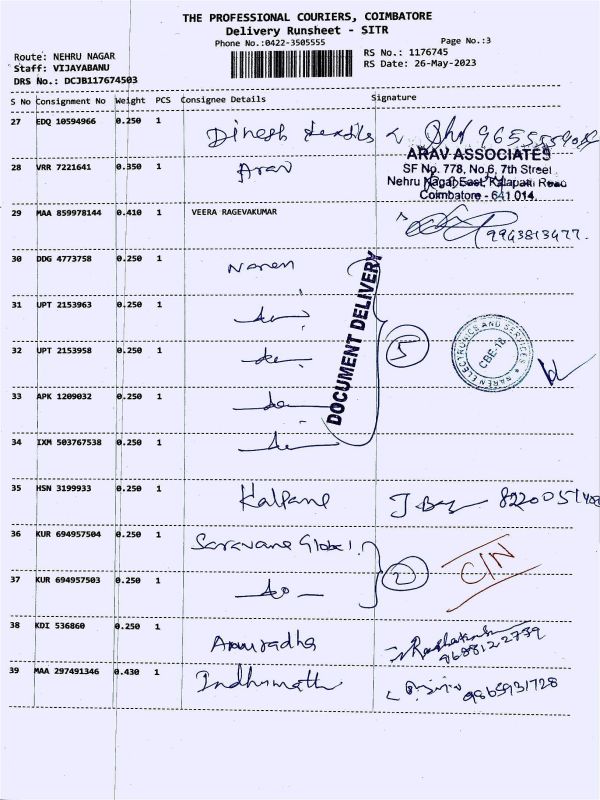 THE PROFESSIONAL COURIERS, COIMBATORE
Delivery Runsheet - SITR
Phone No.:0422-3505555
Page No.:3
Route: NEHRU NAGAR
RS No.: 1176745
Staff: VIJAYABANU
RS Date: 26-May-2023
DRS No.: DCJB117674503
S No Consignment No Weight PCS Consignee Details Signature
27 EDQ 10594966 0.250 1 Dinesh textiles
28 VRR 7221641 0.350 1 Arav
ARAV ASSOCIATES
SF No. 778, No.6, 7th Street
Nehru Nagar East, Kalapati Road
Coimbatore - 641 014.
29 MAA 859978144 0.410 1 VEERA RAGEVAKUMAR 9943813477.
30 DDG 4773758 0.250 1 Naren
DOCUMENT DELIVERY
31 UPT 2153963 0.250 1
32 UPT 2153958 0.250 1
5
NAREN ELECTRONICS AND SERVICES
CBE-18
33 APK 1209032 0.250 1
34 IXM 503767538 0.250 1
35 HSN 3199933 0.250 1 Kalpana
36 KUR 694957504 0.250 1 Saravana Global.
2
C/N
37 KUR 694957503 0.250 1 do
38 KDI 536860 0.250 1 Anuradha 9688122739
39 MAA 297491346 0.430 1 Indhumathi 9865931728